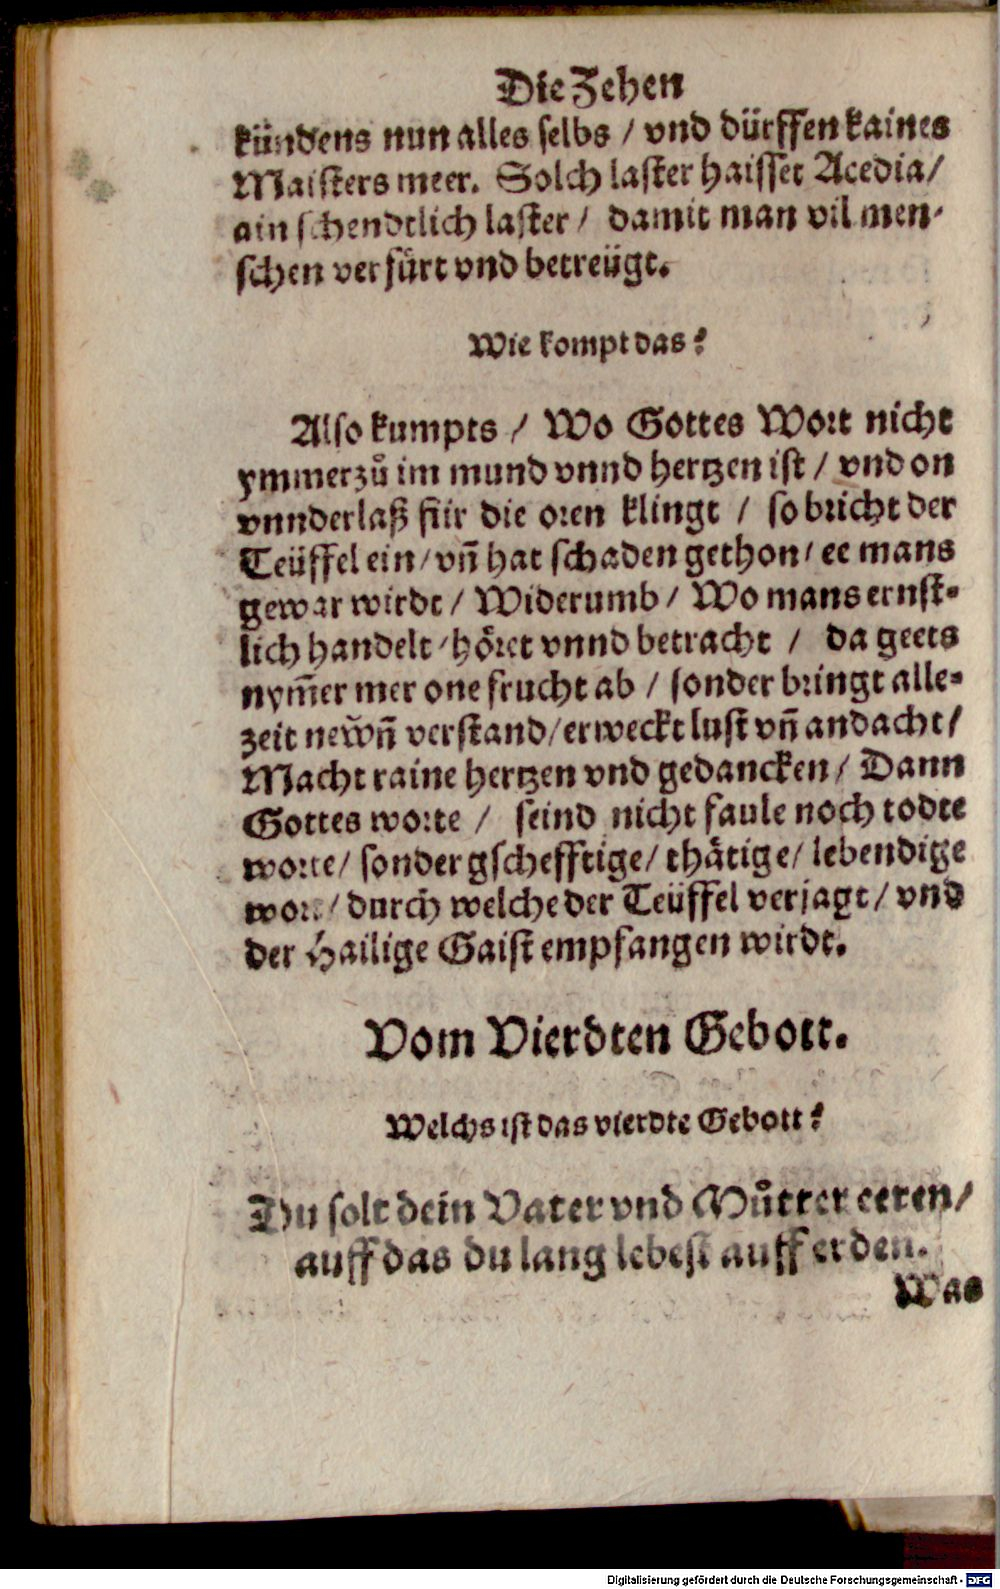 Die Zehen
kündens nun alles selbs / vnd dürffen kaines
Maisters meer. Solch laster haisset Acedia /
ain schendtlich laster / damit man vil men-
schen verfürt vnd betreügt.
Wie kompt das?
Also kumpts / Wo Gottes Wort nicht
ymmerzů im mund vnnd hertzen ist / vnd on
vnnderlaß für die oren klingt / so bricht der
Teüffel ein / vñ hat schaden gethon / ee mans
gewar wirdt / Widerumb / Wo mans ernst-
lich handelt / höret vnnd betracht / da geets
nym̃er mer one frucht ab / sonder bringt alle-
zeit new̃ñ verstand / erweckt lust vñ andacht /
Macht raine hertzen vnd gedancken / Dann
Gottes worte / seind nicht faule noch todte
worte / sonder gschefftige / thätige / lebendige
wort / durch welche der Teüffel verjagt / vnd
der Hailige Gaist empfangen wirdt.
Vom Vierdten Gebott.
Welchs ist das vierdte Gebott?
Du solt dein Vater vnd Můtter eeren /
auff das du lang lebest auff erden.
Was
Digitalisierung gefördert durch die Deutsche Forschungsgemeinschaft - DFG